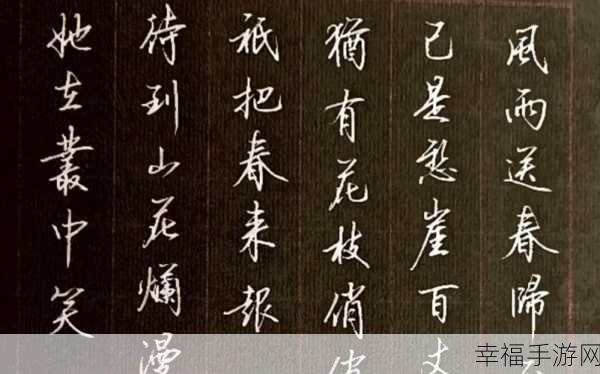 風雨送春歸
已是懸崖百丈
猶有花枝俏俏
祇把春来報
待到山花爛漫
她在叢中笑
幸福手游网